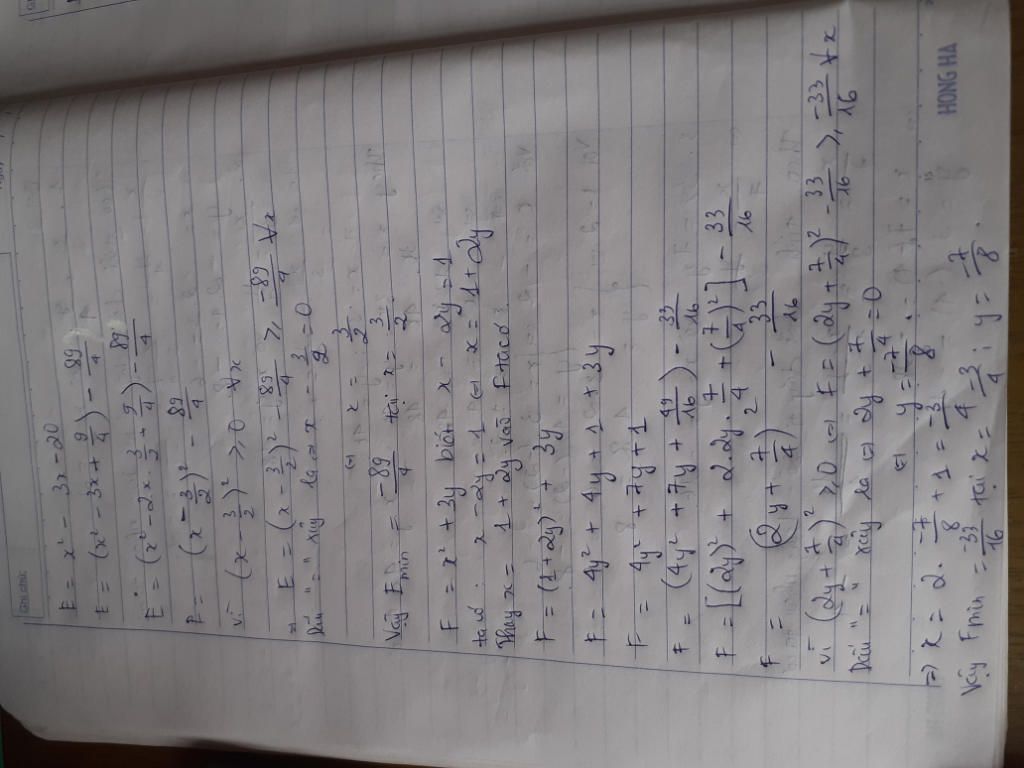 Ghi chú:
E = x² - 3x - 20
E = (x² - 3x + 9/4) - 89/4
E = (x² - 2x . 3/2 + 9/4) - 89/4
E = (x - 3/2)² - 89/4
vì (x - 3/2)² ≥ 0 ∀x
=> E = (x - 3/2)² - 89/4 ≥ -89/4 ∀x
Dấu "=" xảy ra <=> x - 3/2 = 0
<=> x = 3/2
Vậy Emin = -89/4 tại x = 3/2.
F = x² + 3y biết x - 2y = 1
ta có: x - 2y = 1 <=> x = 1 + 2y
Thay x = 1 + 2y vào F ta có:
F = (1 + 2y)² + 3y
F = 4y² + 4y + 1 + 3y
F = 4y² + 7y + 1
F = (4y² + 7y + 49/16) - 33/16
F = [(2y)² + 2.2y. 7/4 + (7/4)²] - 33/16
F = (2y + 7/4)² - 33/16
vì (2y + 7/4)² ≥ 0 <=> F = (2y + 7/4)² - 33/16 ≥ -33/16 ∀x
Dấu "=" xảy ra <=> 2y + 7/4 = 0
<=> y = -7/8.
=> x = 2. -7/8 + 1 = -3/4
Vậy Fmin = -33/16 tại x = -3/4 ; y = -7/8.
HONG HA